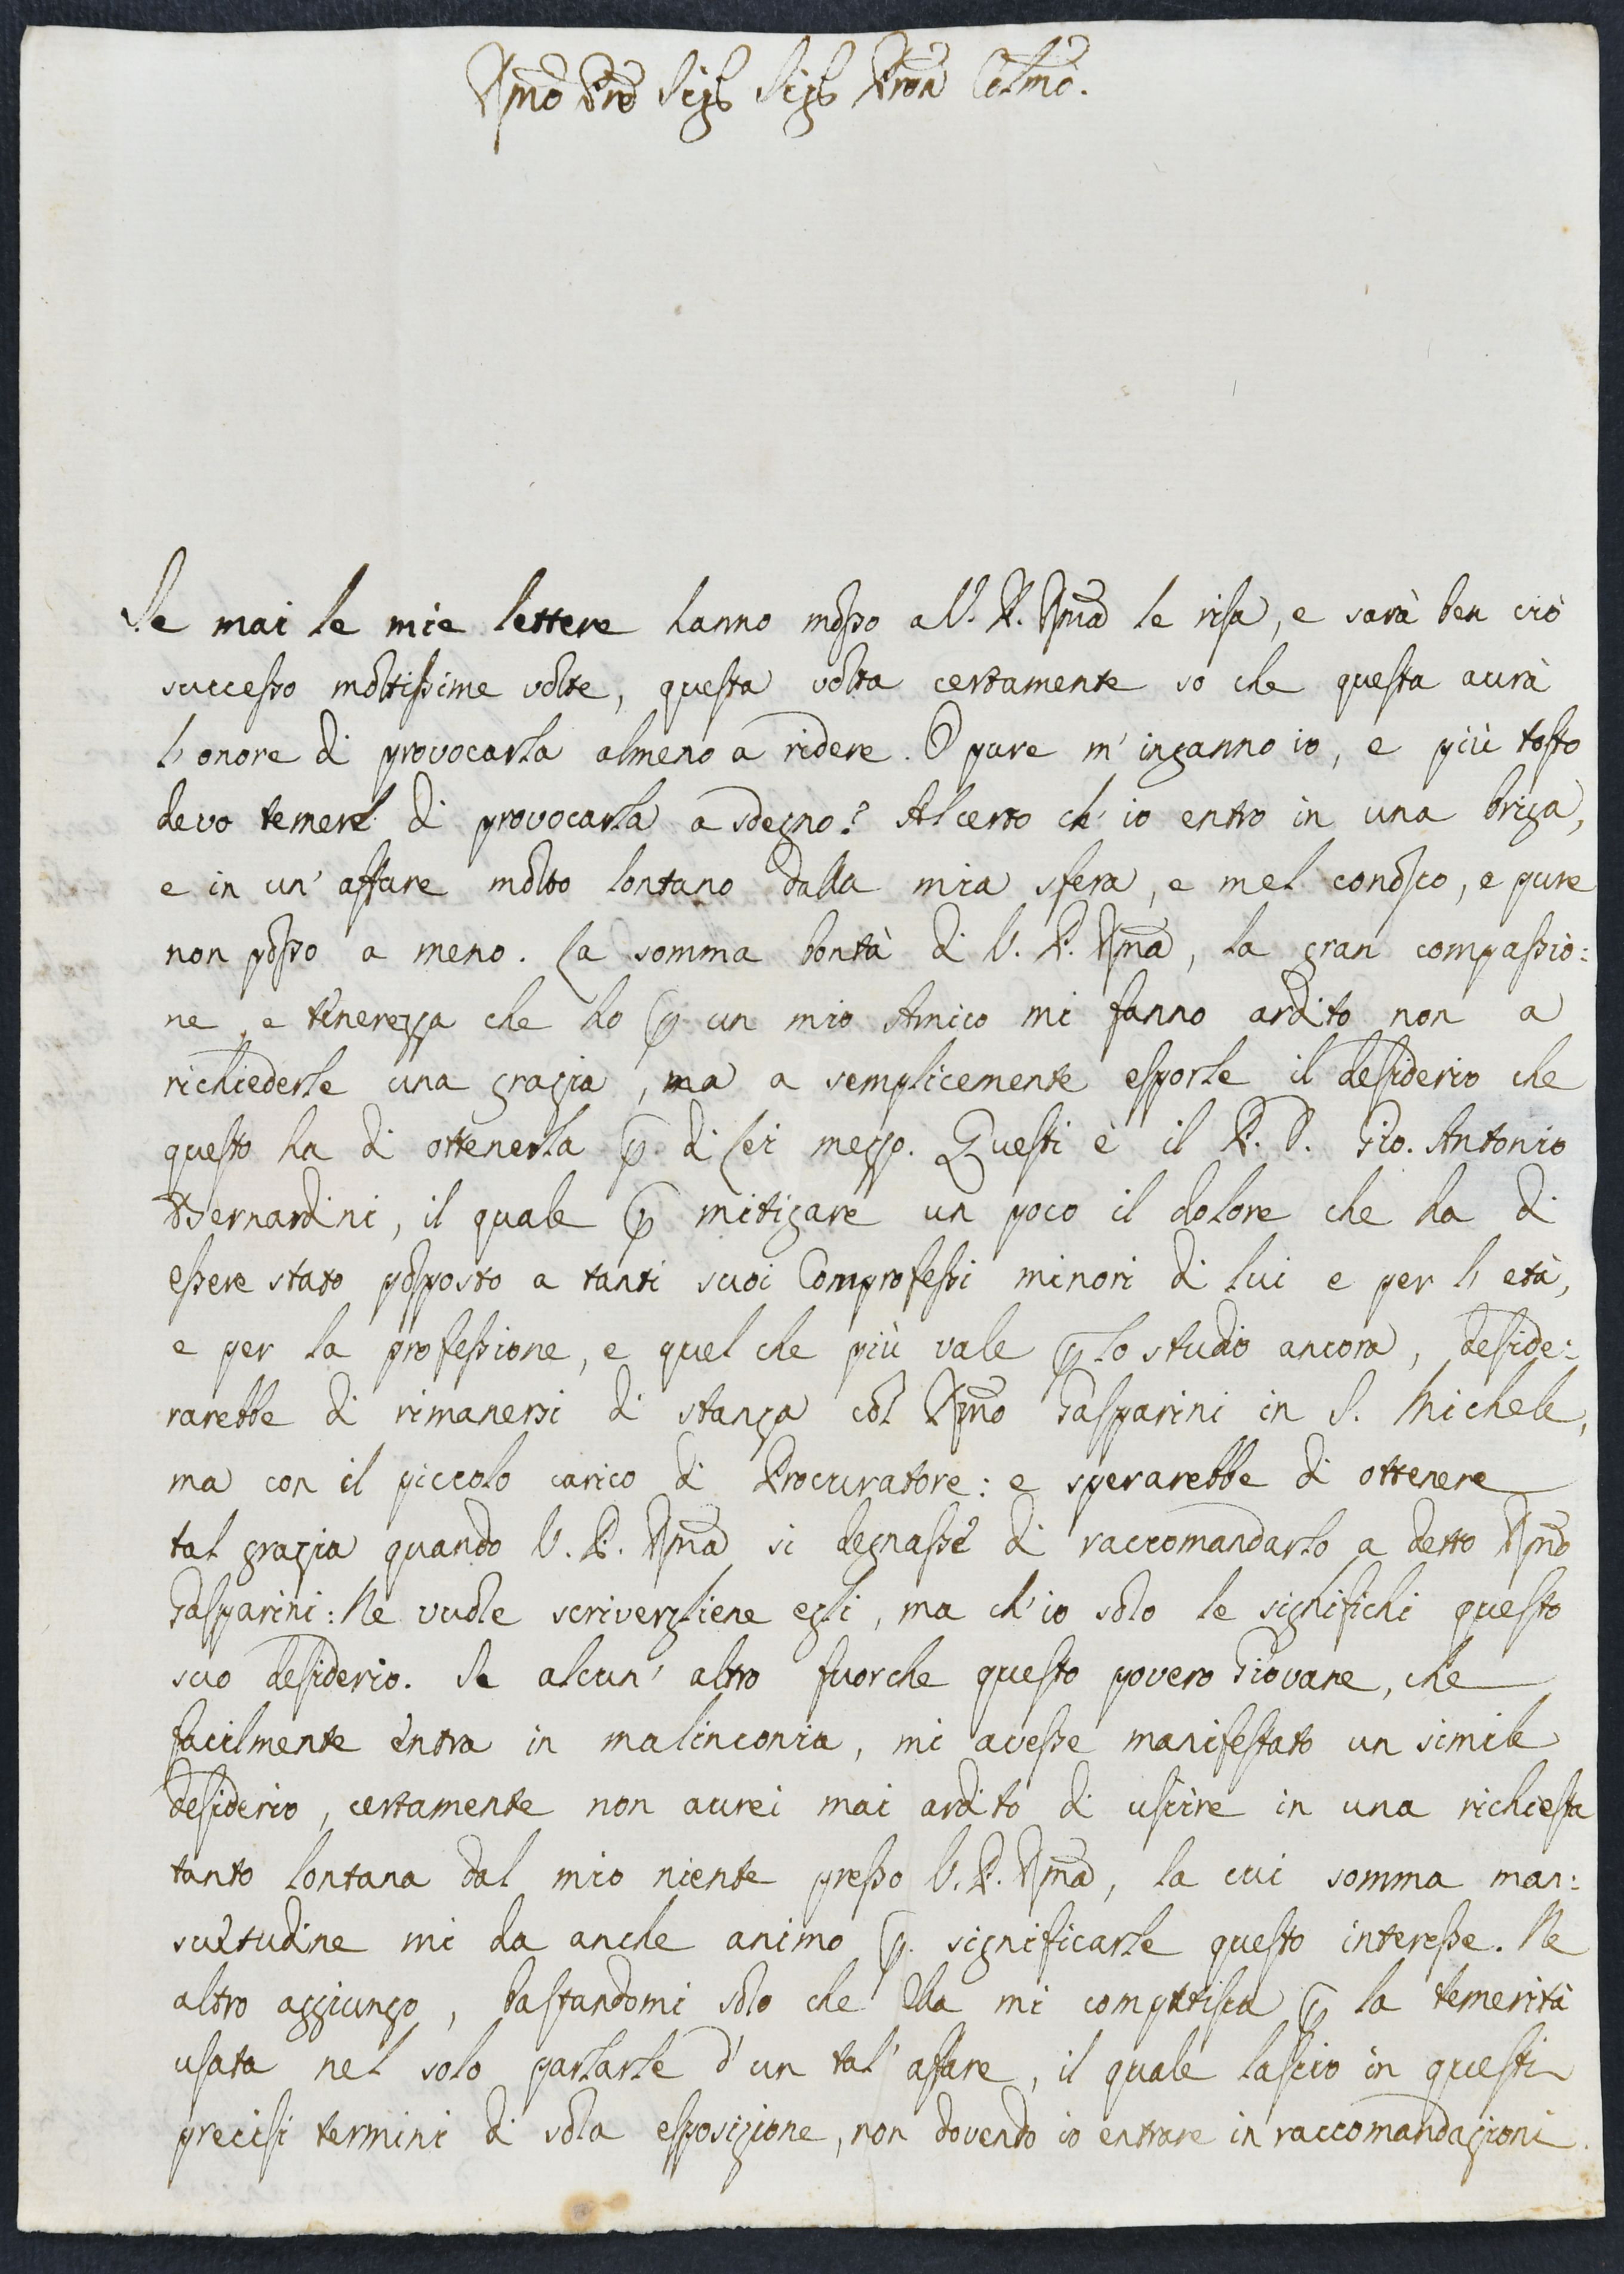 Rmo Pre Sigr Sigr Pron Colmo.
Se mai le mie lettere hanno mosso a V. P. Rma le risa, e sarà ben ciò
successo moltissime volte, questa volta certamente so che questa aurà
l'onore di provocarla almeno a ridere. O pure m'inganno io, e più tosto
devo temere di provocarla a sdegno? Al certo ch'io entro in una briga,
e in un'affare molto lontano dalla mia sfera, e mel conosco, e pure
non posso a meno. La somma bontà di V. P. Rma, la gran compassio:
ne, e tenerezza che ho p un mio Amico mi fanno ardito non a
richiederle una grazia, ma a semplicemente esporle il desiderio che
questo ha di ottenerla p. di Lei mezzo. Questi è il P. D. Gio. Antonio
Bernardini, il quale p mitigare un poco il dolore che ha di
essere stato posposto a tanti suoi Comprofessi minori di lui e per l'età,
e per la professione, e quel che più vale p lo studio ancora, deside:
rarebbe di rimanersi di stanza col Rmo Gasparini in S. Michele,
ma con il piccolo carico di Procuratore: e sperarebbe di ottenere
tal grazia quando V. P. Rma si degnasse di raccomandarlo a detto Rmo
Gasparini: Ne vuole scrivergliene egli, ma ch'io solo le significhi questo
suo desiderio. Se alcun'altro fuorche questo povero Giovane, che
facilmente entra in malinconia, mi avesse manifestato un simile
desiderio, certamente non aurei mai ardito di uscire in una richiesta
tanto lontana dal mio niente presso V. P. Rma, la cui somma man:
suetudine mi da anche animo p. significarle questo interesse. Ne
altro aggiungo, bastandomi solo che Ella mi compatisca p la temerità
usata nel solo parlarle d'un tal'affare, il quale lascio in questi
precisi termini di sola esposizione, non dovendo io entrare in raccomandazioni.